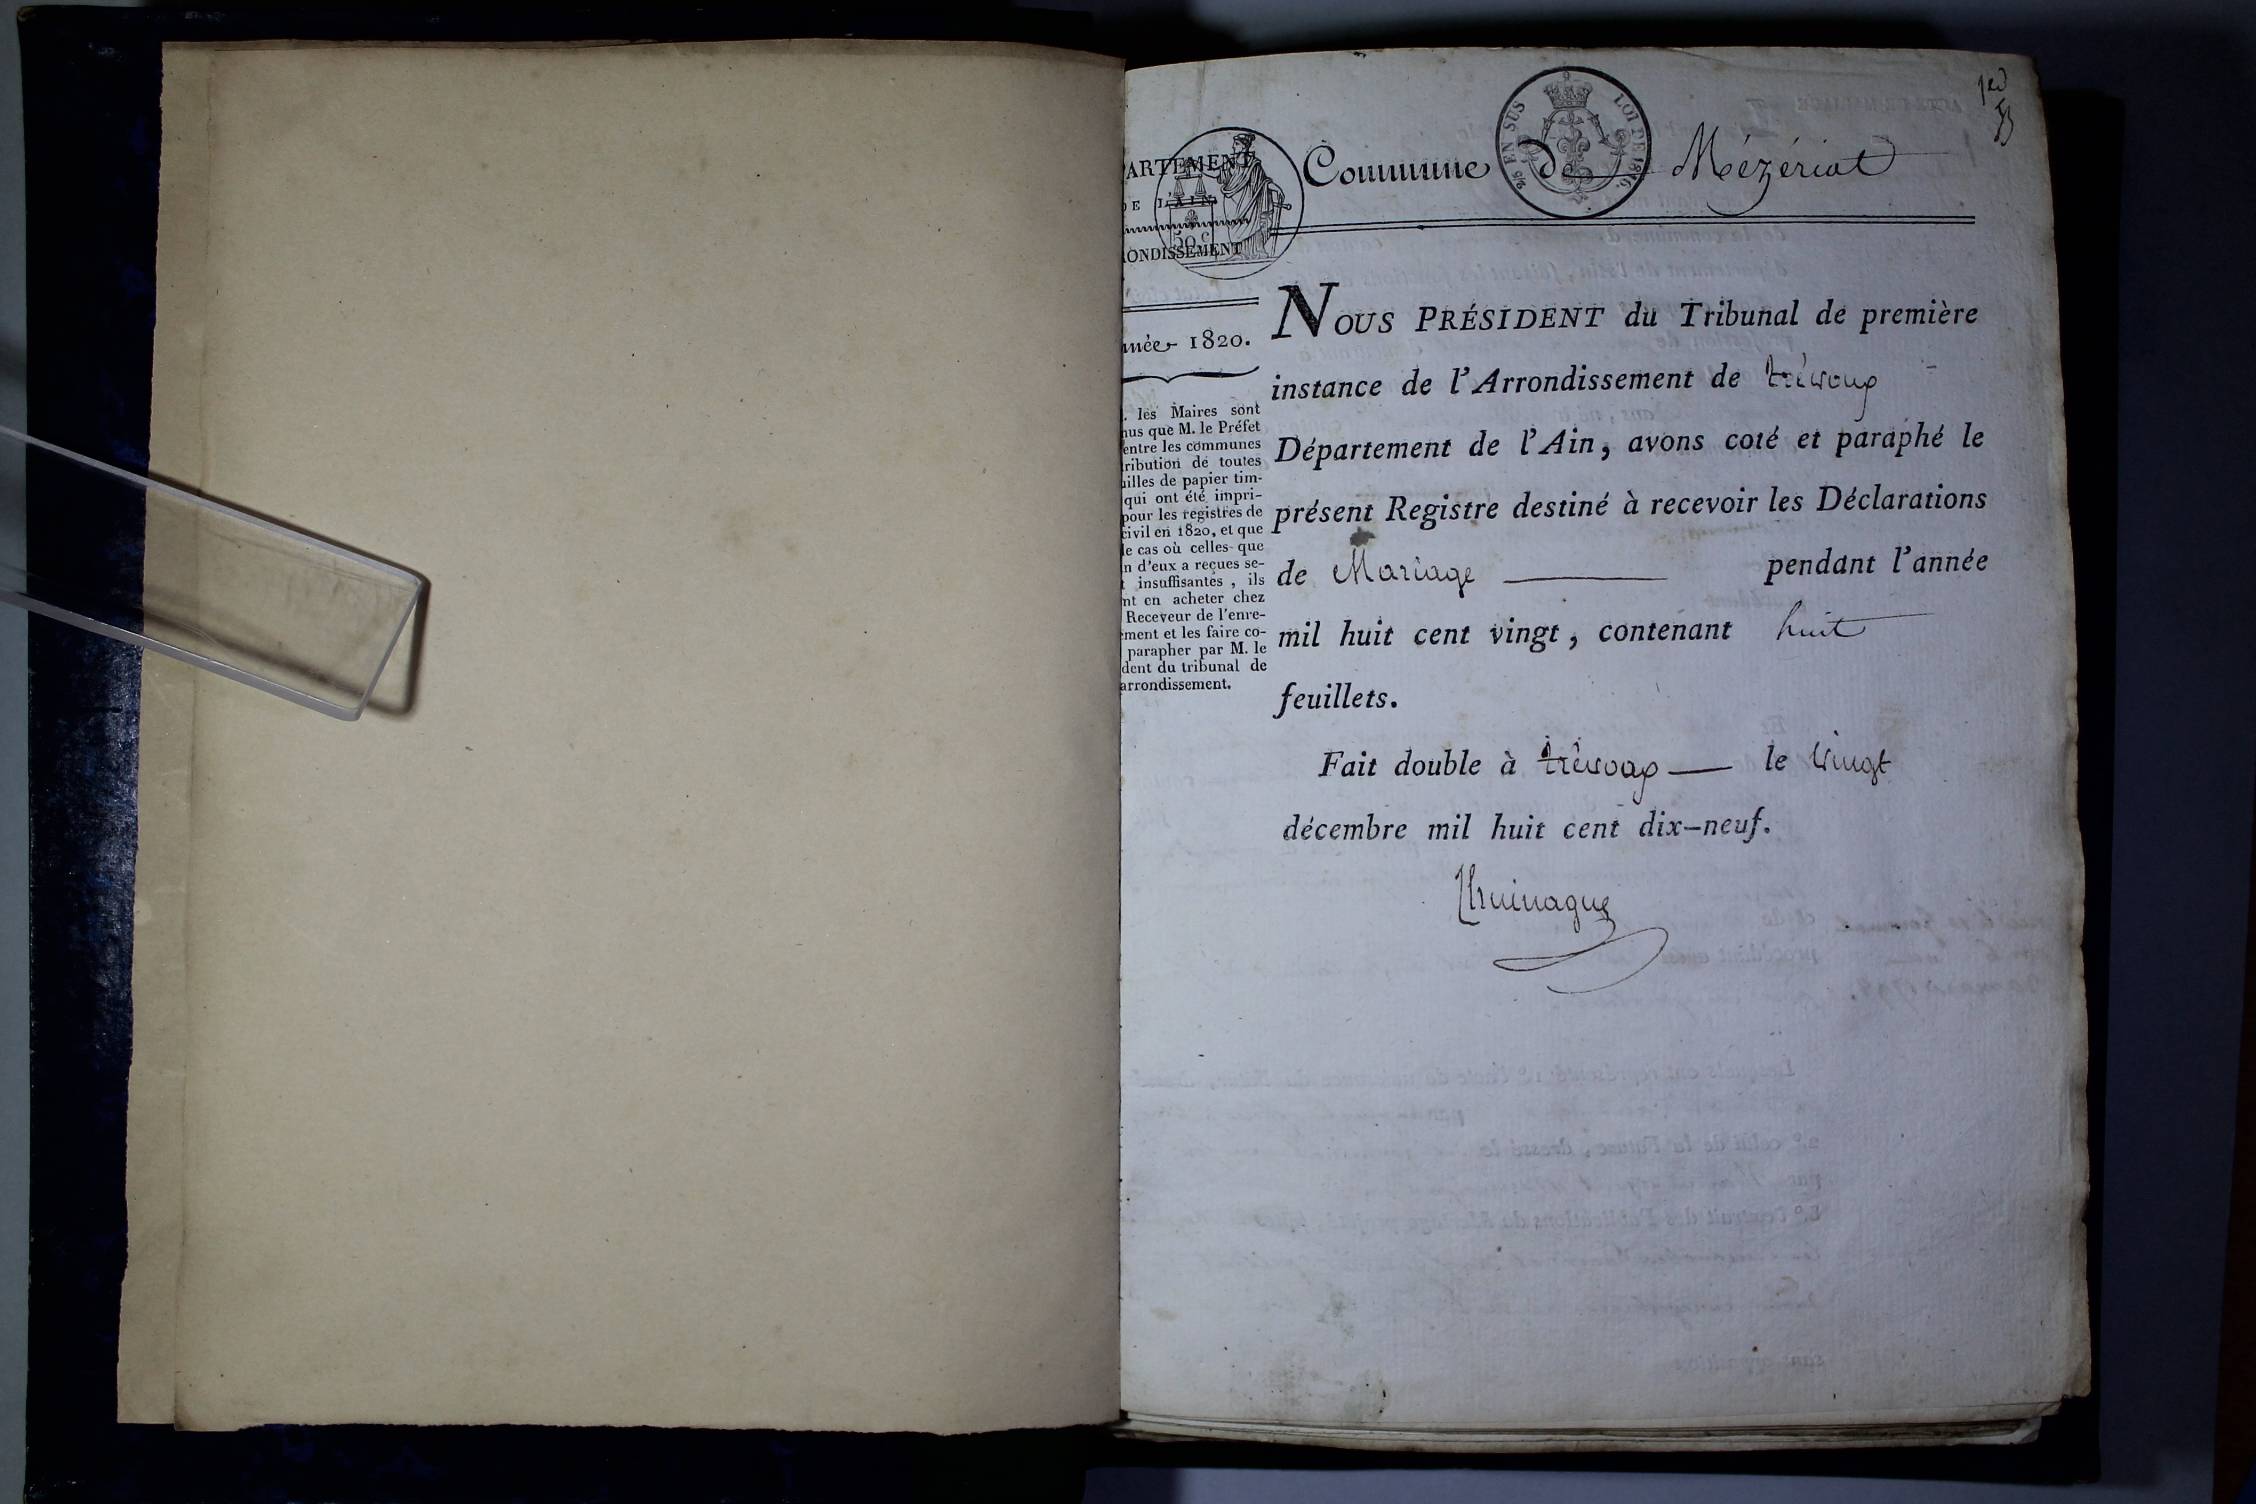 1er
5/10 EN SUS LOI DE 1816.
Commune de Mézériat
PARTEMENT
DE L'AIN.
50 c
RONDISSEMENT
nnée 1820.
. les Maires sont
nus que M. le Préfet
entre les communes
tribution de toutes
uilles de papier tim-
qui ont été impri-
pour les registres de
civil en 1820, et que
le cas où celles-que
n d'eux a reçues se-
t insuffisantes, ils
nt en acheter chez
Receveur de l'enre-
ement et les faire co-
parapher par M. le
dent du tribunal de
arrondissement.
NOUS PRÉSIDENT du Tribunal de première
instance de l'Arrondissement de trévoux
Département de l'Ain, avons coté et paraphé le
présent Registre destiné à recevoir les Déclarations
de Mariage pendant l'année
mil huit cent vingt, contenant huit
feuillets.
Fait double à trévoux le vingt
décembre mil huit cent dix-neuf.